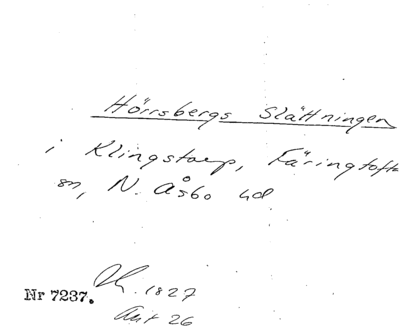 Hörrsbergs Slättningen
i Klingstorp, Färingtofta
sn, N. Åsbo hd
Nr 7237. 1827
Art 26